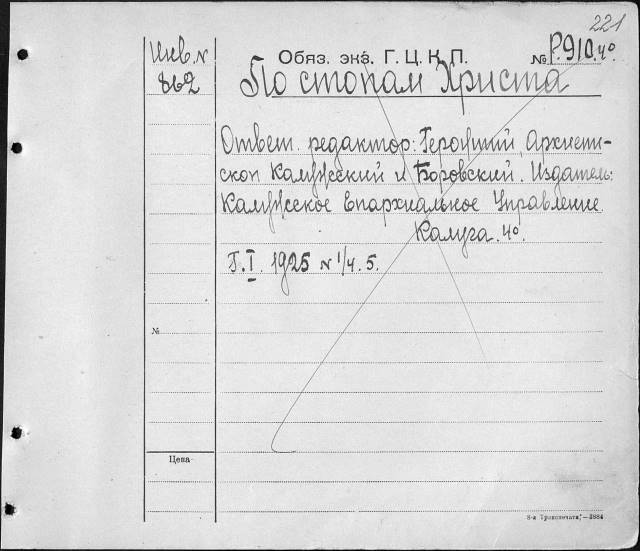 221
Инв. N
862
Обяз. экз. Г.Ц.К.П.
№ Р.910.4º
По стопам Христа
Ответ. редактор: Архиепи-
скоп Калужский и Боровский. Издатель:
Калужское Епархиальное Управление
Калуга. 4º.
Г. I. 1925 N 1/4. 5.
№
Цена